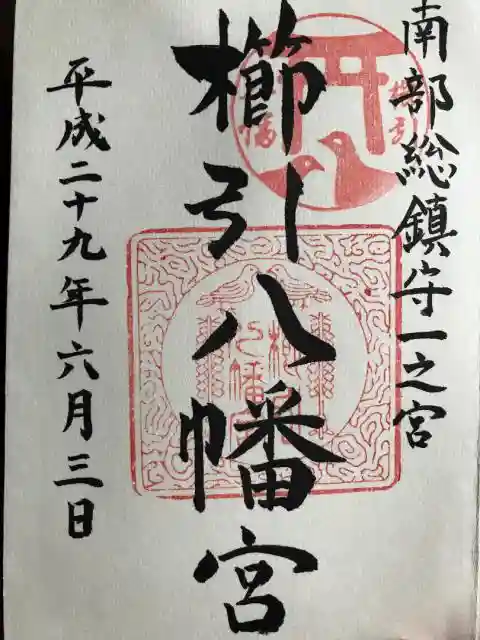 南部総鎮守一之宮
櫛引八幡宮
平成二十九年六月三日
櫛引
八幡